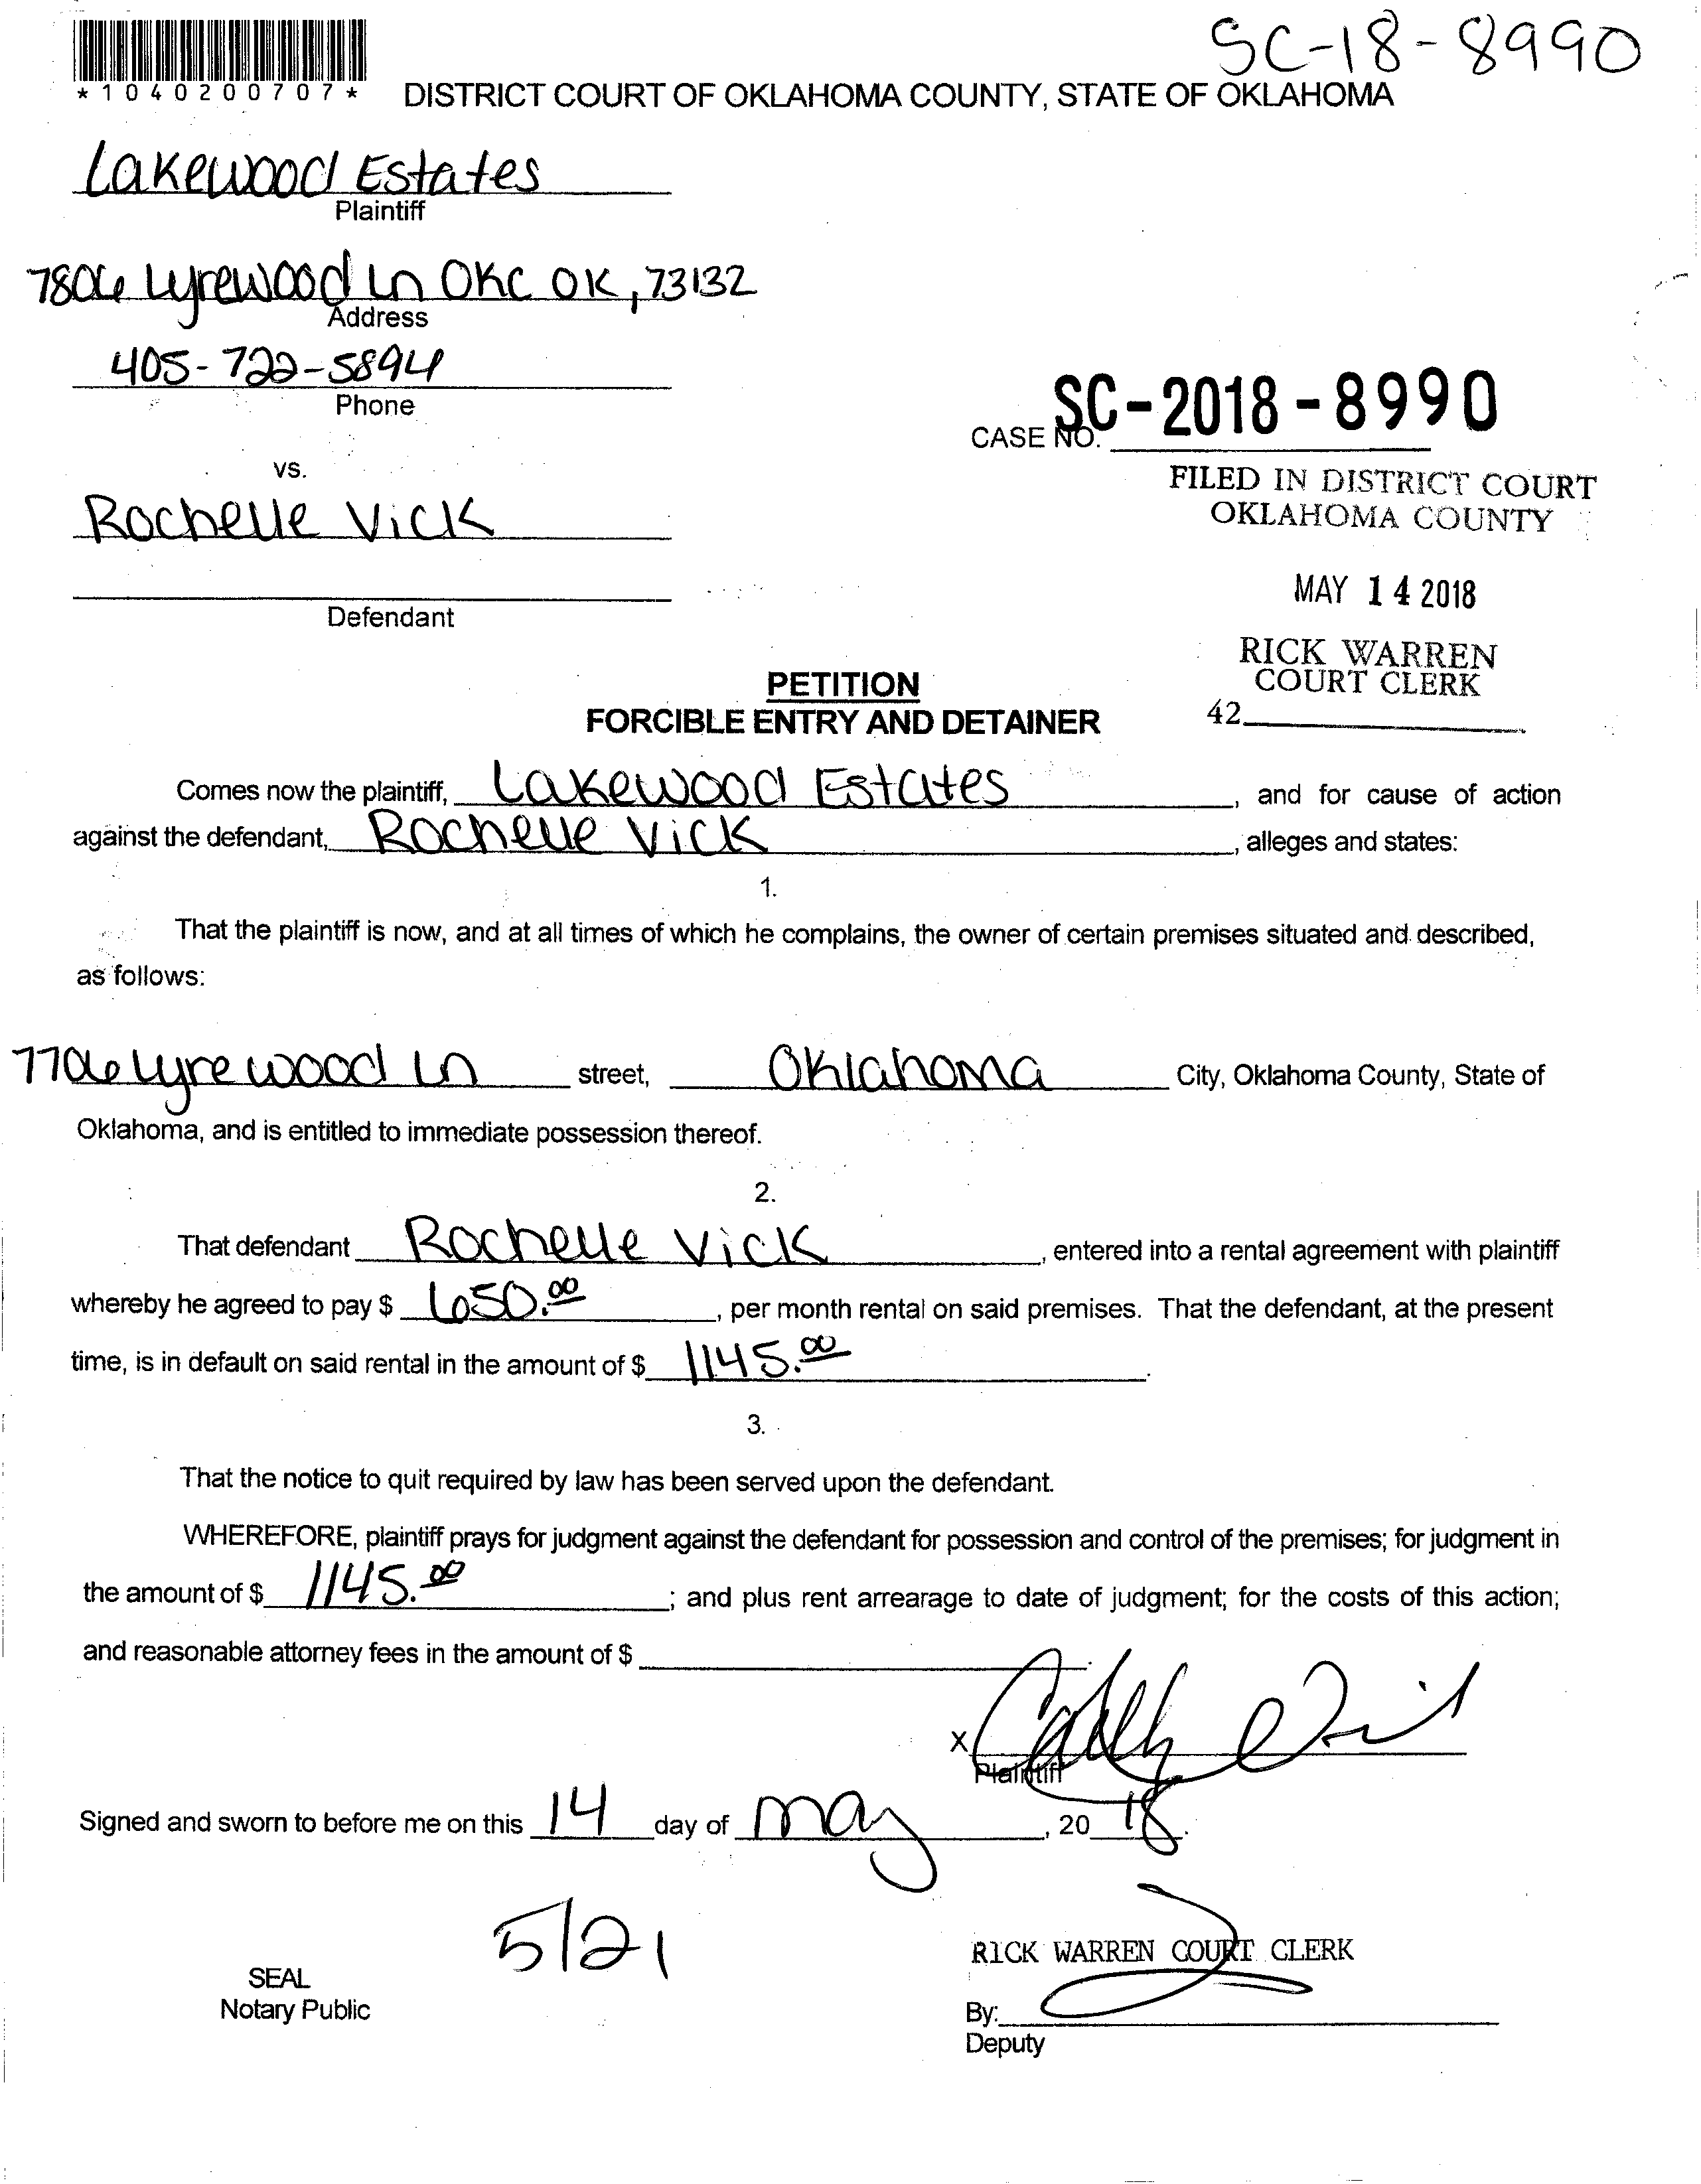 SC-18-8990
*1040200707*
DISTRICT COURT OF OKLAHOMA COUNTY, STATE OF OKLAHOMA
Lakewood Estates
Plaintiff
7806 Lyrewood Ln OKC OK, 73132
Address
405-722-5894
Phone
CASE NO. SC-2018-8990
vs.
FILED IN DISTRICT COURT
OKLAHOMA COUNTY
Rochelle Vick
MAY 14 2018
Defendant
RICK WARREN
COURT CLERK
42
PETITION
FORCIBLE ENTRY AND DETAINER
Comes now the plaintiff, Lakewood Estates, and for cause of action
against the defendant, Rochelle Vick, alleges and states:
1.
That the plaintiff is now, and at all times of which he complains, the owner of certain premises situated and described,
as follows:
7706 Lyrewood Ln street, Oklahoma City, Oklahoma County, State of
Oklahoma, and is entitled to immediate possession thereof.
2.
That defendant Rochelle Vick, entered into a rental agreement with plaintiff
whereby he agreed to pay $ 650.00, per month rental on said premises. That the defendant, at the present
time, is in default on said rental in the amount of $ 1145.00.
3.
That the notice to quit required by law has been served upon the defendant.
WHEREFORE, plaintiff prays for judgment against the defendant for possession and control of the premises; for judgment in
the amount of $ 1145.00; and plus rent arrearage to date of judgment; for the costs of this action;
and reasonable attorney fees in the amount of $ .
X
Plaintiff
Signed and sworn to before me on this 14 day of may, 20 18.
5/21
RICK WARREN COURT CLERK
SEAL
Notary Public
By:
Deputy